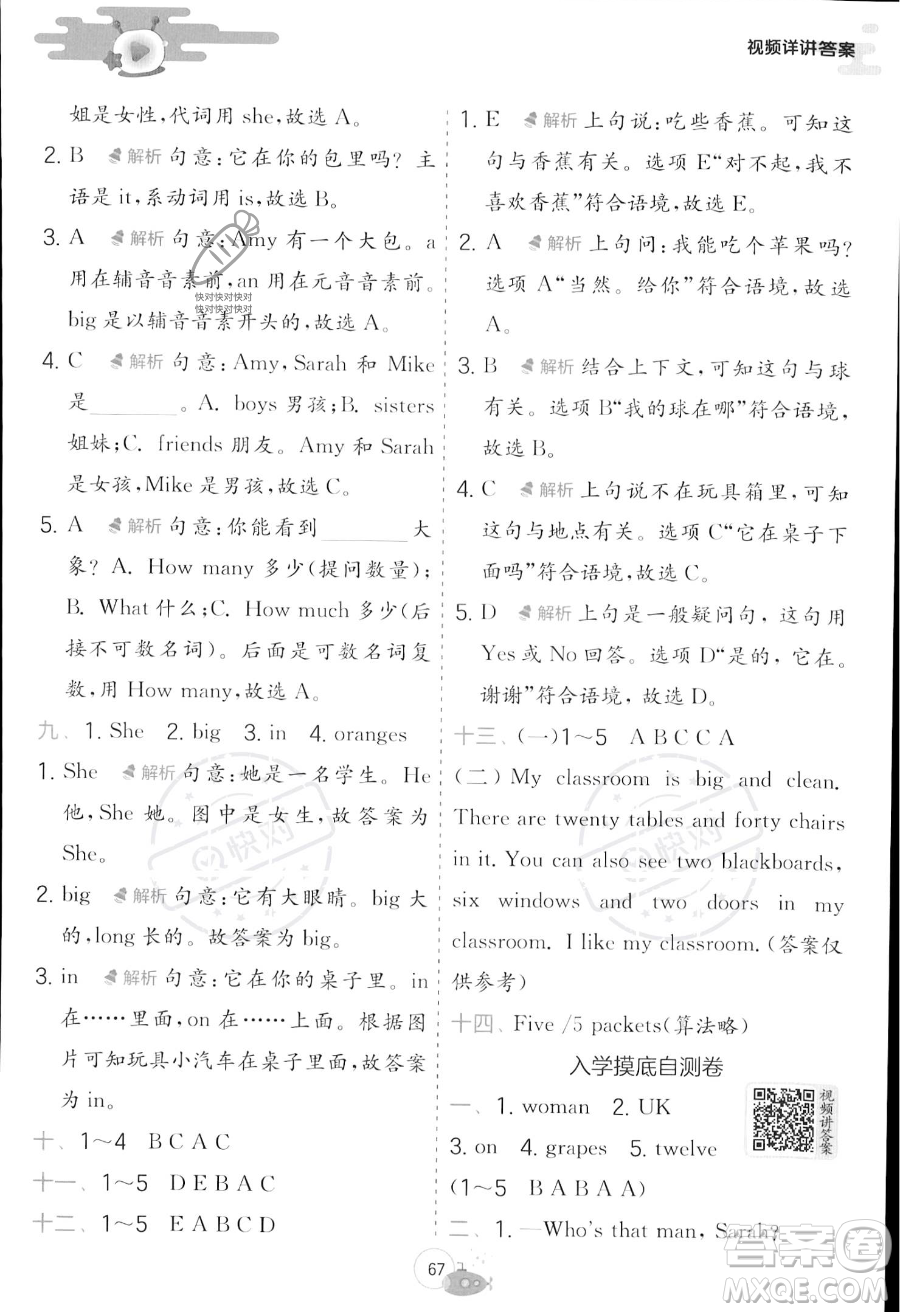 视频详讲答案
姐是女性,代词用 she,故选 A。
2. B 解析 句意:它在你的包里吗? 主
语是 it,系动词用 is,故选 B。
3. A 解析 句意:Amy 有一个大包。a
用在辅音音素前,an 用在元音音素前。
big 是以辅音音素开头的,故选 A。
4. C 解析 句意:Amy,Sarah 和 Mike
是________。A. boys 男孩;B. sisters
姐妹;C. friends 朋友。Amy 和 Sarah
是女孩,Mike 是男孩,故选 C。
5. A 解析 句意:你能看到________大
象? A. How many 多少(提问数量);
B. What 什么;C. How much 多少(后
接不可数名词)。后面是可数名词复
数,用 How many,故选 A。
九、1. She 2. big 3. in 4. oranges
1. She 解析 句意:她是一名学生。He
他,She 她。图中是女生,故答案为
She。
2. big 解析 句意:它有大眼睛。big 大
的,long 长的。故答案为 big。
3. in 解析 句意:它在你的桌子里。in
在……里面,on 在……上面。根据图
片可知玩具小汽车在桌子里面,故答案
为 in。
十、1~4 B C A C
十一、1~5 D E B A C
十二、1~5 E A B C D
1. E 解析 上句说:吃些香蕉。可知这
句与香蕉有关。选项 E“对不起,我不
喜欢香蕉”符合语境,故选 E。
2. A 解析 上句问:我能吃个苹果吗?
选项 A“当然。给你”符合语境,故选
A。
3. B 解析 结合上下文,可知这句与球
有关。选项 B“我的球在哪”符合语境,
故选 B。
4. C 解析 上句说不在玩具箱里,可知
这句与地点有关。选项 C“它在桌子下
面吗”符合语境,故选 C。
5. D 解析 上句是一般疑问句,这句用
Yes 或 No 回答。选项 D“是的,它在。
谢谢”符合语境,故选 D。
十三、(一)1~5 A B C C A
(二) My classroom is big and clean.
There are twenty tables and forty chairs
in it. You can also see two blackboards,
six windows and two doors in my
classroom. I like my classroom.(答案仅
供参考)
十四、Five /5 packets(算法略)
入学摸底自测卷
一、1. woman 2. UK
3. on 4. grapes 5. twelve
(1~5 B A B A A)
二、1. —Who's that man, Sarah?
视频讲答案
67
快对快对快对
快对快对快对
快对
答案圈
MXQE.COM